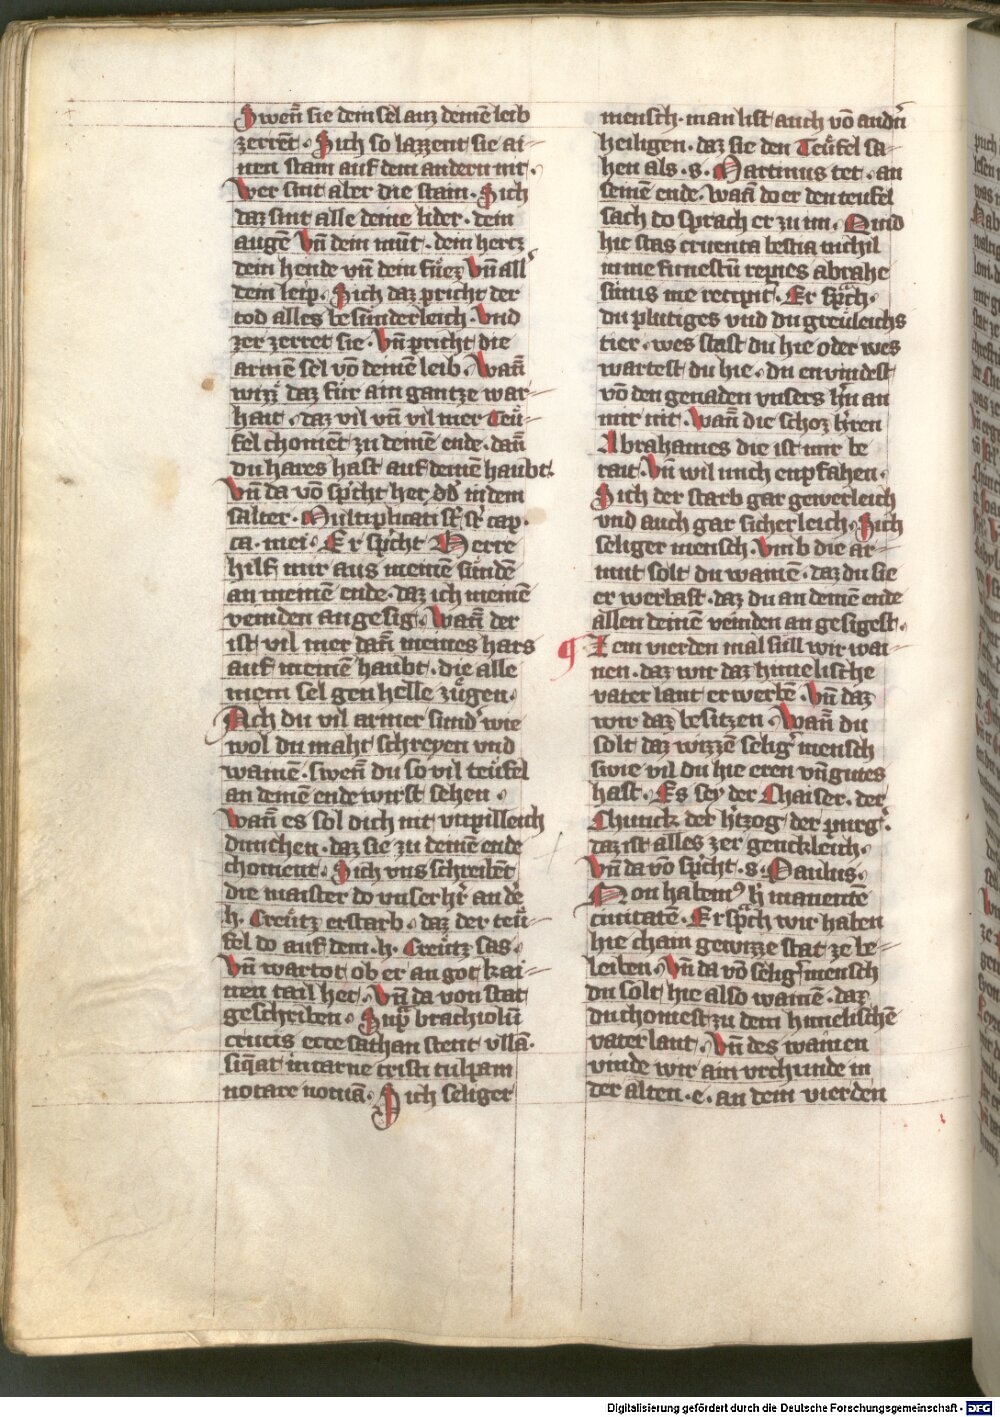 Swen̄ sie dem sel auz demē leib
zerret̄ · Sich so lazzent sie ai-
nen stain auf dem andern nit ·
Wer sint aber die stain · Sich
daz sint alle deine lider · dein
augē Vn̄ dein mūt · dein hertz
dein hende vn̄ dein fuͤez Vn̄ all
dein leip · Sich daz pricht der
tod alles besunderleich · Vnd
zer zerret sie · Vn̄ pricht die
armē sel vō demē leib · Wan̄
wizz daz fuͤr ain gantze war-
hait · daz vil vn̄ vil mer Teuͤ-
fel chomēt zu demē ende · dan̄
du hares hast auf demē haubt
Vn̄ da vō spͥcht her dd̄ in dem
salter · Multiplicati st̄ sr̄ cap ·
ca · mei · Er spͥcht Herre
hilf mir aus meinē suͤndē
an meinē ende · daz ich meinē
veinden angesig · Wan̄ der
ist vil mer dan̄ meines hars
auf meinē haubt · die alle
mein sel gen helle zuͤgen ·
Ach du vil armer sund' wie
wol du maht schreyen vnd
wainē · swen̄ du so vil teuͤfel
an demē ende wirst sehen ·
Wan̄ es sol dich nit vnpilleich
dunchen · daz sie zu deinē ende
choment · Sich vns schreibēt
die maister do vnser hr̄ an dē
h. Creuͤtz erstarb · daz der teuͤ-
fel do auf dem · h. Creuͤtz sas ·
Vn̄ wartot ob er an got kai-
nen tail het · Vn̄ da von stat
geschriben · Sup̄ brachiolū
crucis ecce sathan stetit vllā ·
siq̄at in carne cristi culpam
notare nociuā · Sich seliger
mensch · man list auch vō andn̄
heiligen · daz sie den Teuͤfel sa-
hen als · s · Martinus tet · an
seinē ende · Wan̄ do er den teufel
sach do sprach er zu im · Quid
hic stas cruenta bestia nichil
in me funestū repies abrahe
sinus me recipit · Er spᵃch ·
du plutiges vnd du greuͤleichs
tier · wes stast du hie oder wes
wartest du hie · du envindest
vō den genaden vnsers hr̄n an
mir nit · Wan̄ die schoz h'ren
Abrahames die ist mir be
rait · Vn̄ wil mich enpfahen ·
Sich der starb gar gewerleich
vnd auch gar sicherleich · Sich
seliger mensch · Vmb die ar-
mut solt du wainē · daz du sie
er werbast · daz du an demē ende
allen deinē veinden an gesigest ·
¶ Zem vierden mal sull wir wai-
nen · daz wir daz himelische
vater lant er werbē · Vn̄ daz
wir daz besitzen · Wan̄ du
solt daz wizzē selig' mensch
swie vil du hie eren vn̄ gutes
hast · Es sey der Chaiser · der
Chunick der h'tzog der purg' ·
daz ist alles zer genckleich ·
Vn̄ da vō spͥcht · s · Paulus ·
Non habem⁹ hͥ manentē
ciuitatē · Er spᵃch wir haben
hie chain gewizze stat ze be-
leiben · Vn̄ da vō selig' mensch
du solt hie also wainē · daz
du chomest zu dem himelischē
vater lant · Vn̄ des wainen
vinde wir ain vrchunde in
der alten · e · an dem vierden
Digitalisierung gefördert durch die Deutsche Forschungsgemeinschaft - DFG